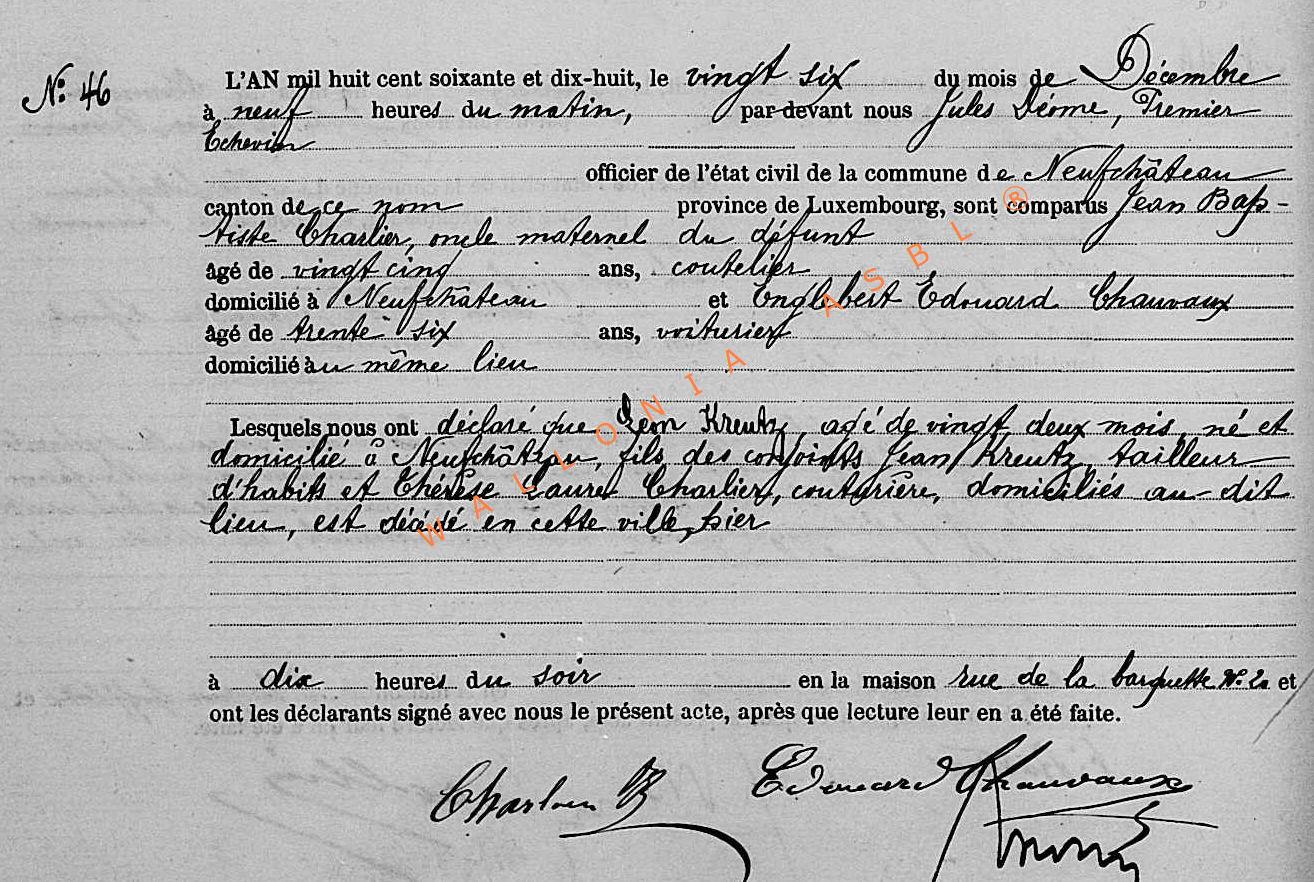 N° 46
L'AN mil huit cent soixante et dix-huit, le vingt six du mois de Décembre
à neuf heures du matin, par-devant nous Jules Déome, Premier
Echevin
officier de l'état civil de la commune de Neufchâteau
canton de ce nom province de Luxembourg, sont comparus Jean Bap-
tiste Charlier, oncle maternel du défunt
âgé de vingt cinq ans, coutelier
domicilié à Neufchâteau et Englebert Edouard Chauvaux
âgé de trente six ans, voiturier
domicilié au même lieu
Lesquels nous ont déclaré que Léon Kreutz, agé de vingt deux mois, né et
domicilié à Neufchâteau, fils des conjoints Jean Kreutz, tailleur
d'habits et Thérèse Laure Charlier, couturière, domiciliés au-dit
lieu, est décédé en cette ville, hier
à dix heures du soir en la maison rue de la barquette N° 20 et
ont les déclarants signé avec nous le présent acte, après que lecture leur en a été faite.
Edouard Chauvaux
WALLONIA ASBL ®